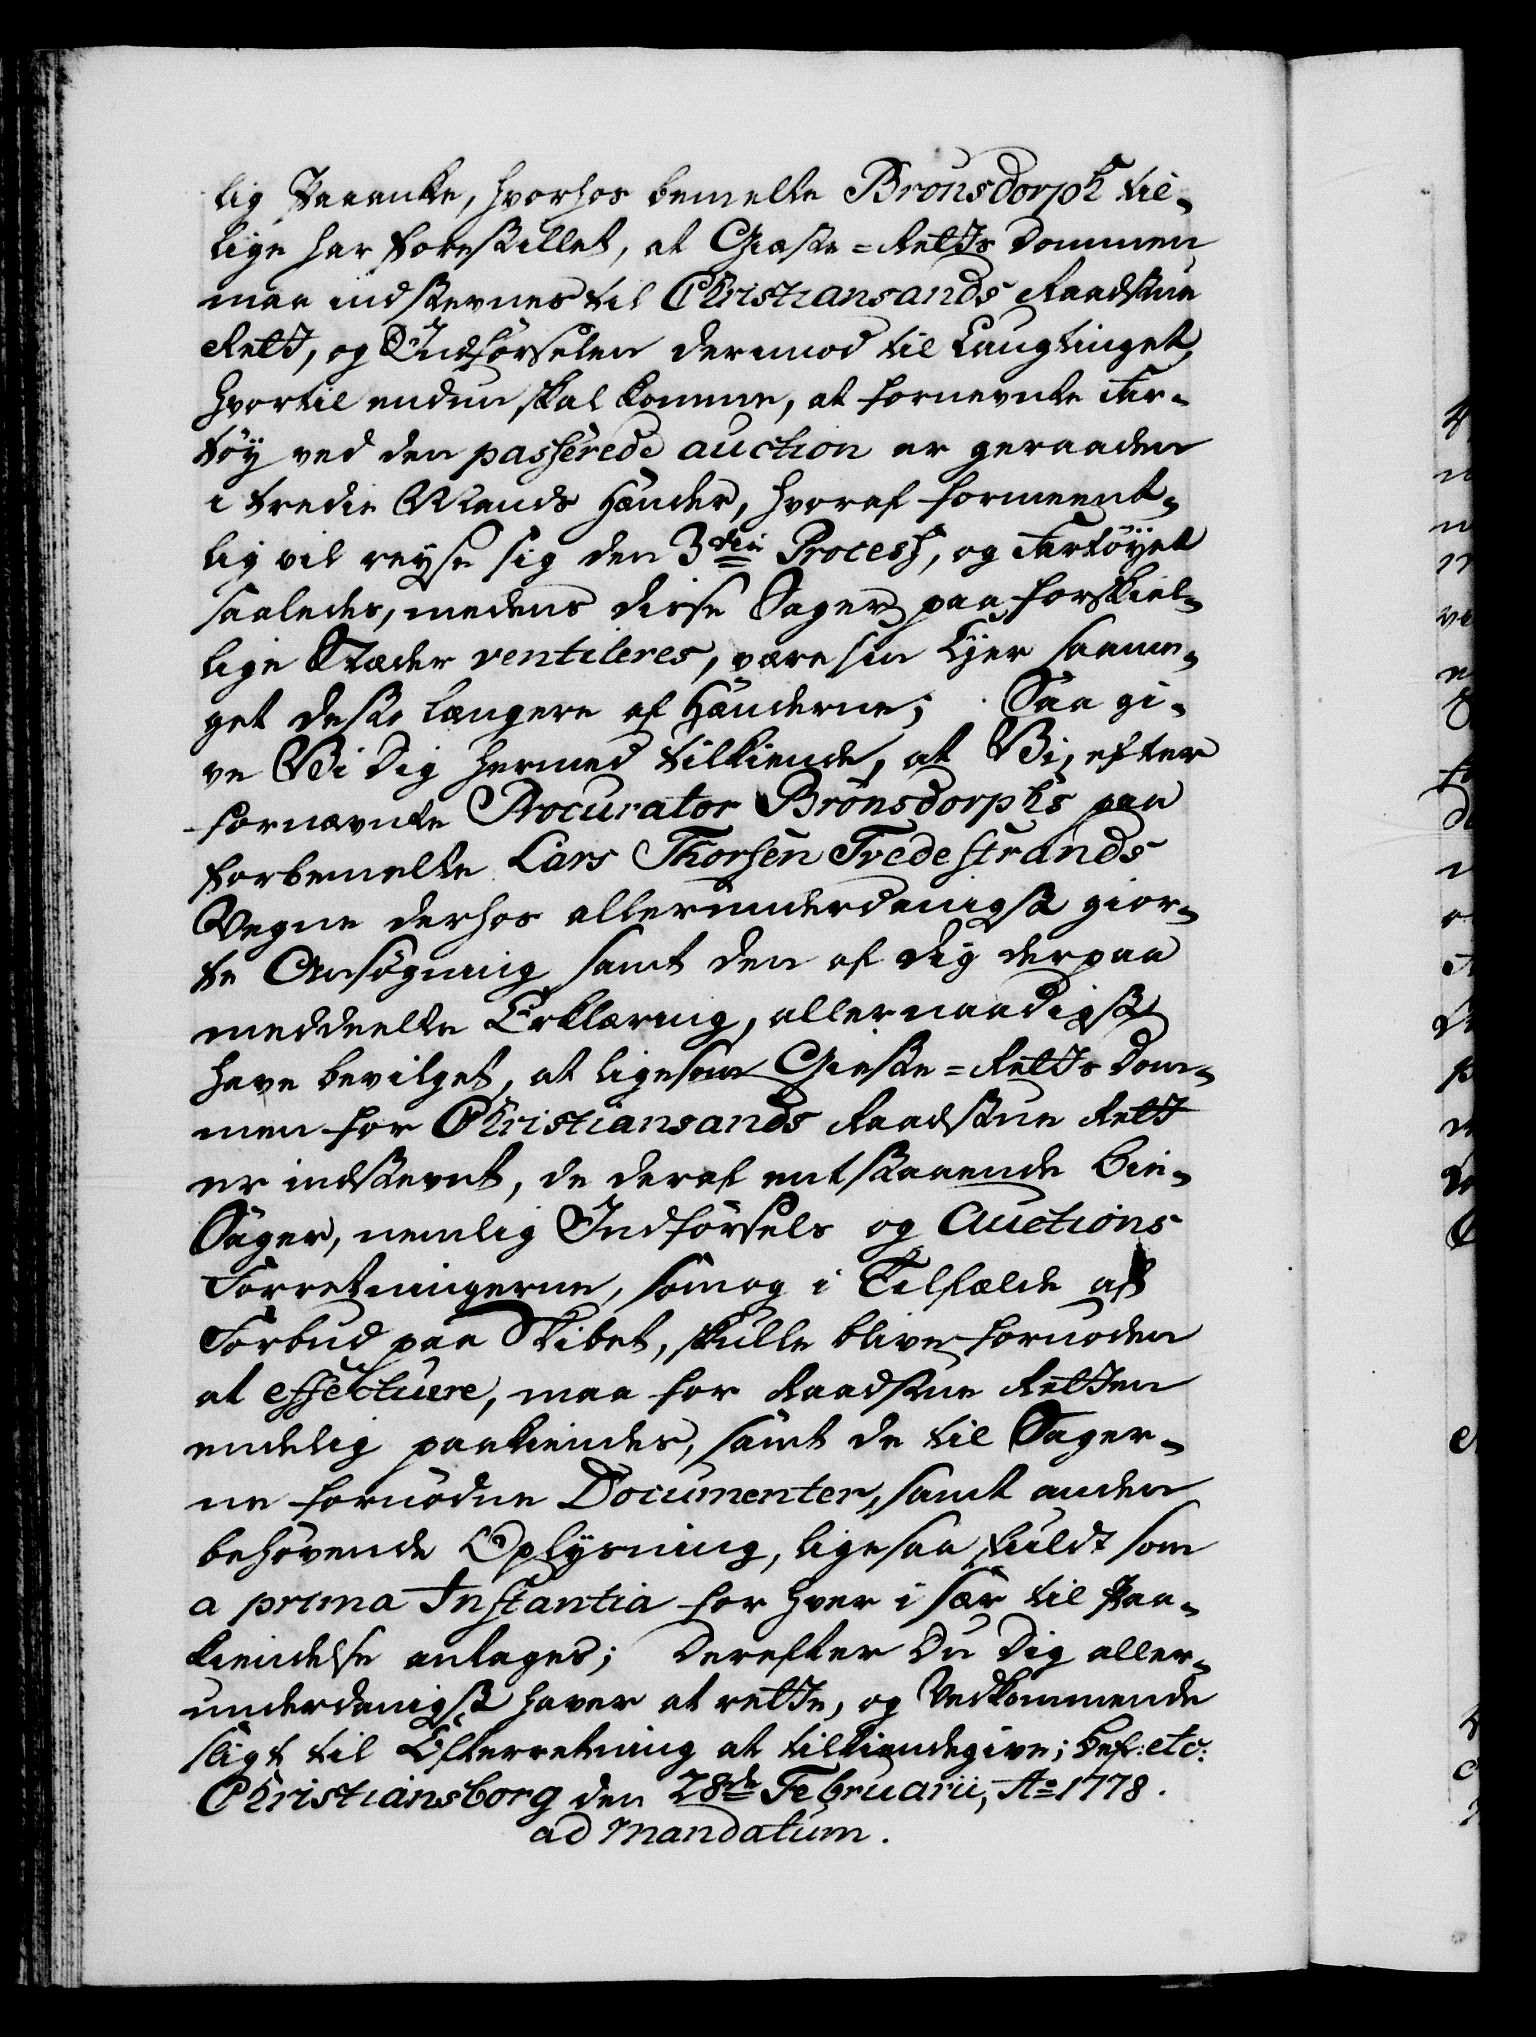 lig Paaanke, hvorhos bemelte Brønsdorph til-
lige har forestillet, at Gieste-Retts Dommen
maa indstevnes til Christiansands Raadstue
Rett, og Indførselen derimod til Laugtinget,
hvortil endnu skal komme, at fornevnte Far-
tøy ved den passerede auction er geraaden
i tredie Mands Hænder, hvoraf formeent-
lig vil reyse sig den 3die Process, og Fartøyet
saaledes, medens disse Sager paa forskiel-
lige Stæder ventileres, være sin Ejer saame-
get desto længere af Hænderne; Saa gi-
ve Vi Dig hermed tilkiende, at Vi, efter
fornævnte Procurator Brønsdorphs paa
forbemelte Lars Thorsen Fredestrands
Vegne derhos allerunderdanigst gior-
te Ansøgning samt den af dig derpaa
meddeelte Erklæring, allernaadigst
have bevilget, at ligesom Gieste-Retts Dom-
men for Christiansands Raadstue Rett
er indstevnt, de deraf entstaaende bie-
Sager, nemlig Indførsels og Auctions
Forretningerne, som og i Tilfælde at
Forbud paa Skibet, skulle blive fornøden
at effectuere, maa for Raadstue Retten
endelig paakiendes, samt de til Sager-
ne fornødne Documenter, samt anden
behøvende Oplysning, ligesaa fuldt som
a prima Instantia for hver i sær til Paa-
kiendelse antages; Derefter Du Dig aller-
underdanigst haver at rette, og Vedkommende
sligt til Efterretning at tilkiendegive; Bef: etc:
Christiansborg den 28de Februarii, Ao 1778.
ad mandatum.